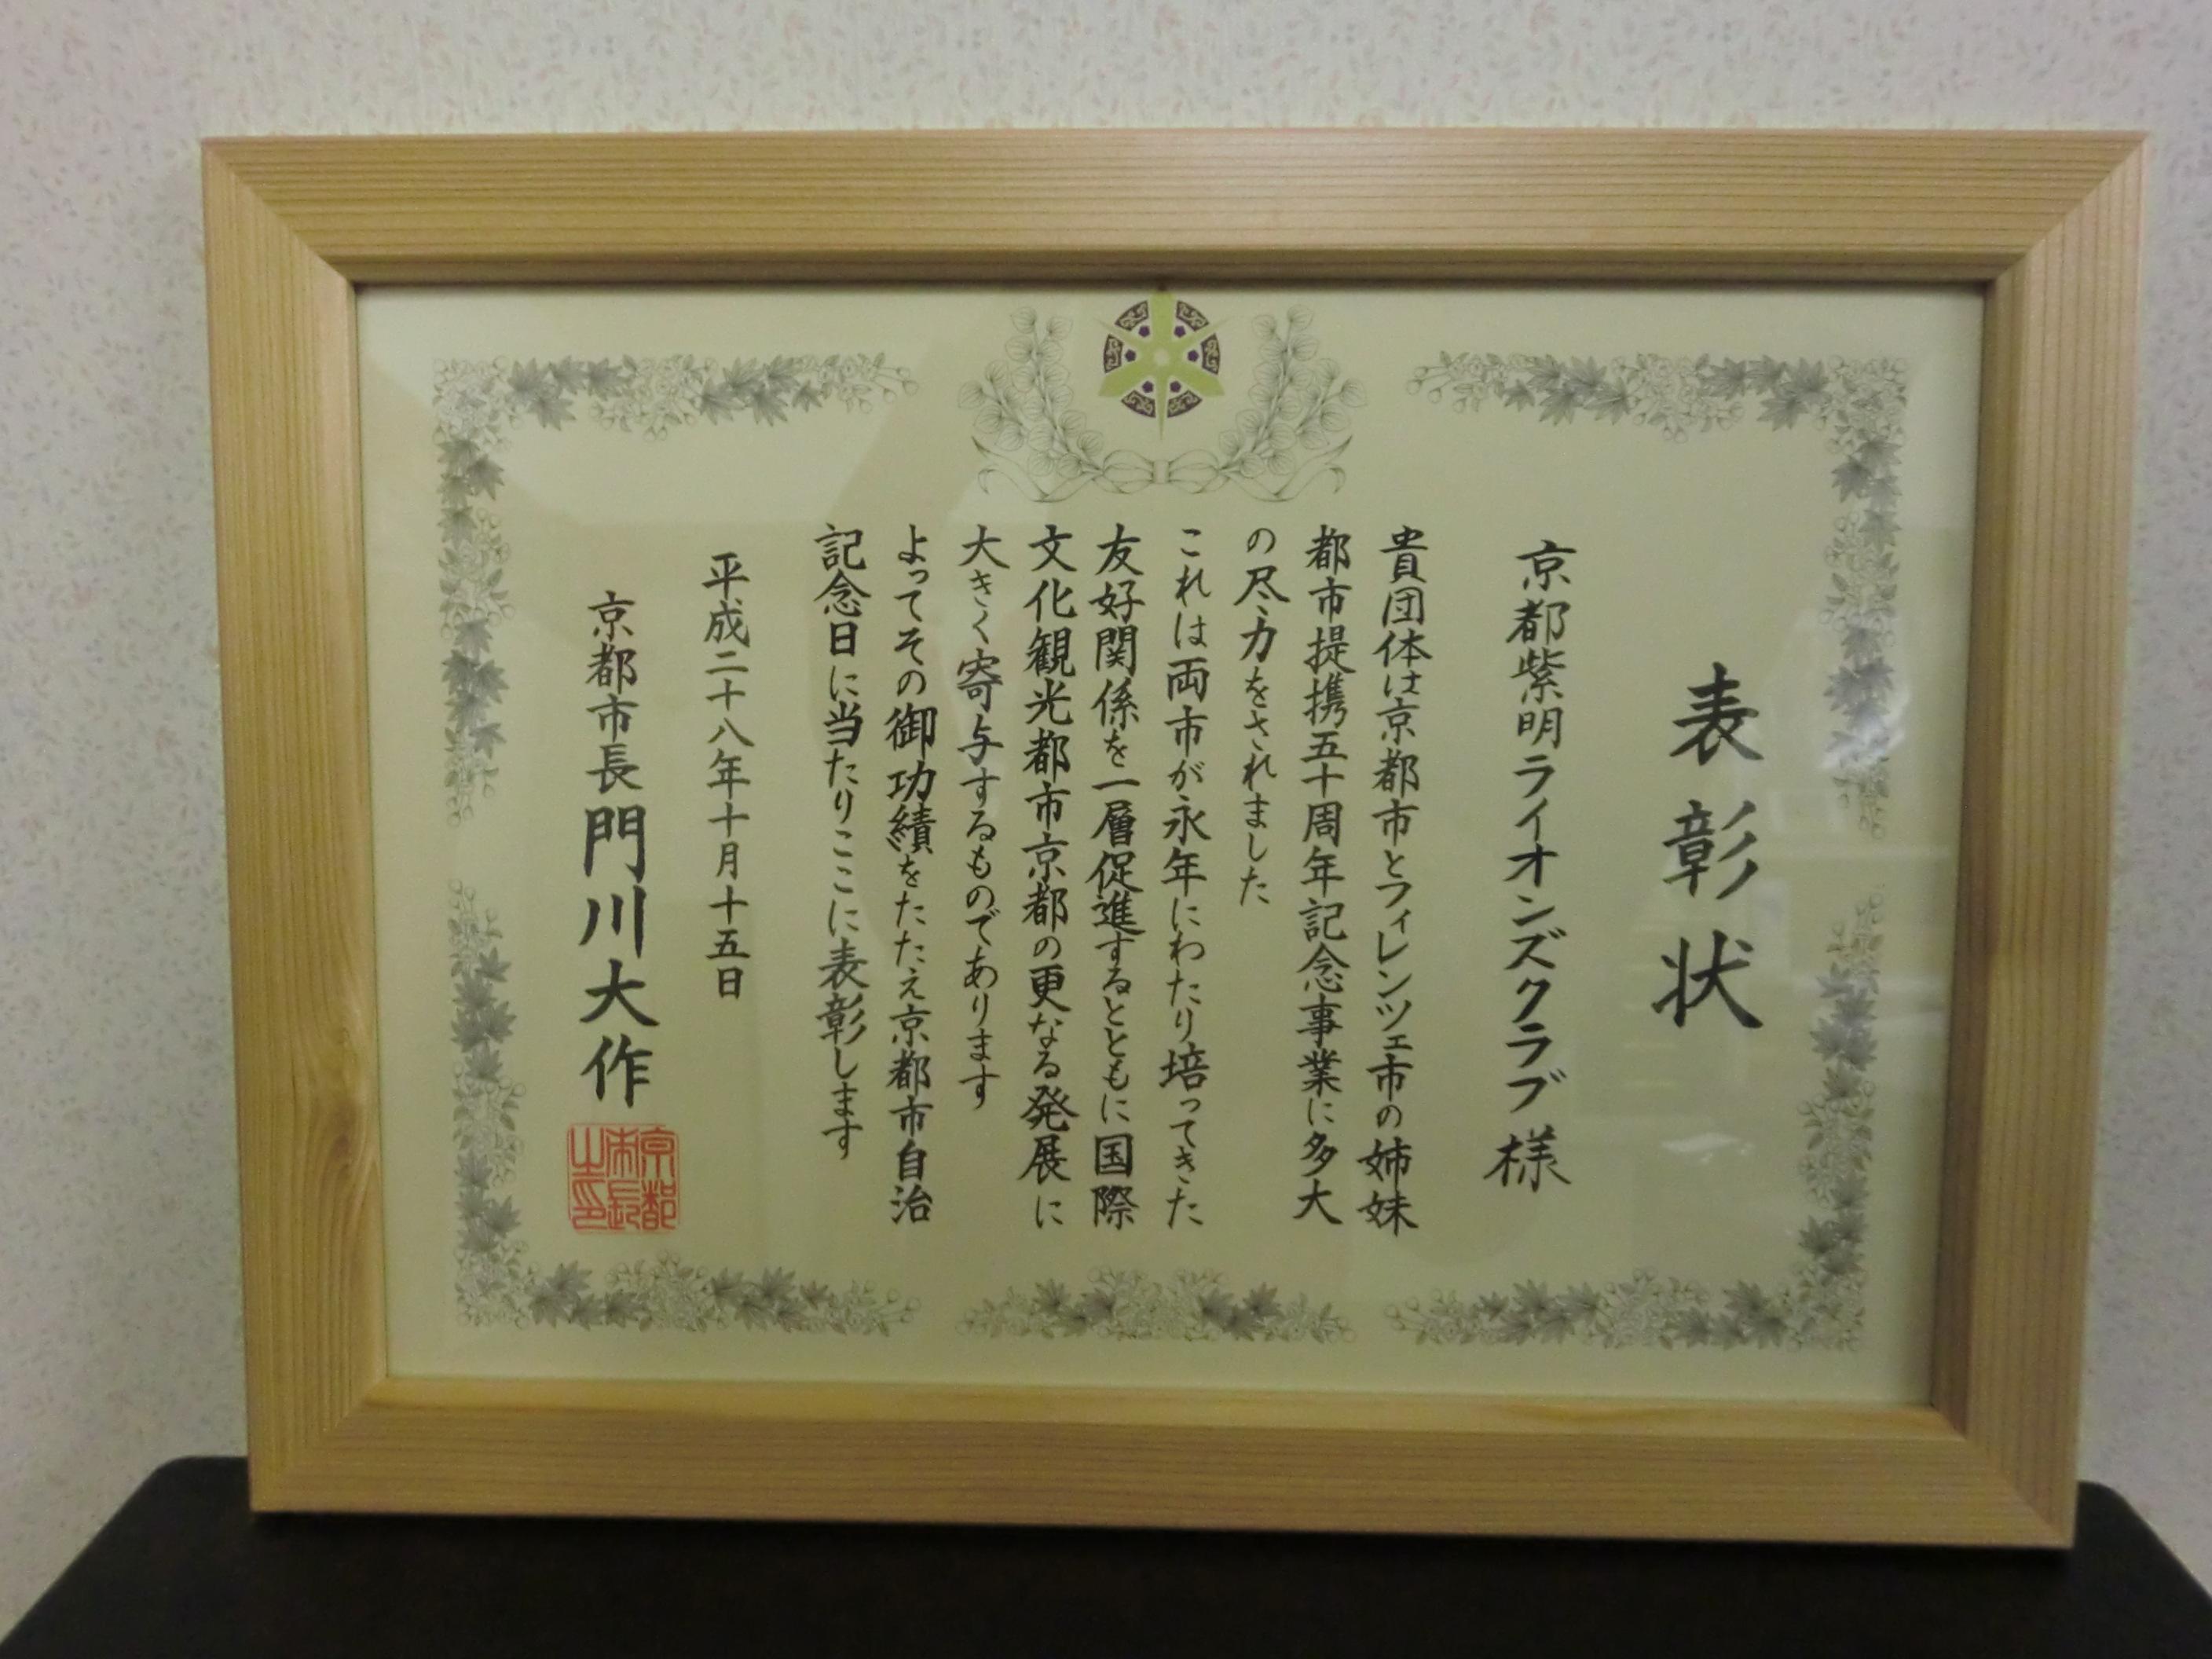 表彰状
京都紫明ライオンズクラブ様
貴団体は京都市とフィレンツェ市の姉妹
都市提携五十周年記念事業に多大
の尽力をされました
これは両市が永年にわたり培ってきた
友好関係を一層促進するとともに国際
文化観光都市京都の更なる発展に
大きく寄与するものであります
よってその御功績をたたえ京都市自治
記念日に当たりここに表彰します
平成二十八年十月十五日
京都市長門川大作
京都
市長
之印